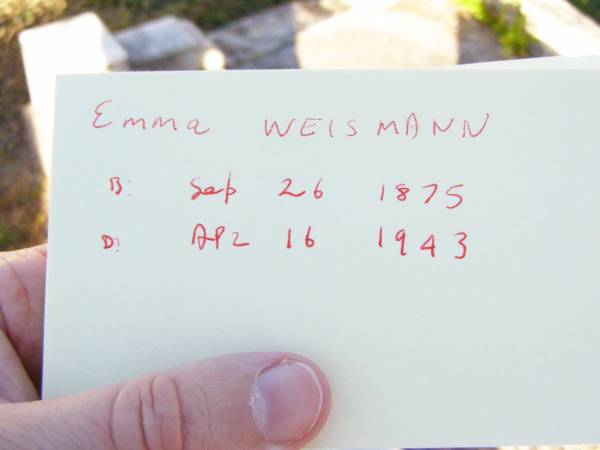 Emma WEISMANN
B: Sep 26 1875
D: APR 16 1943